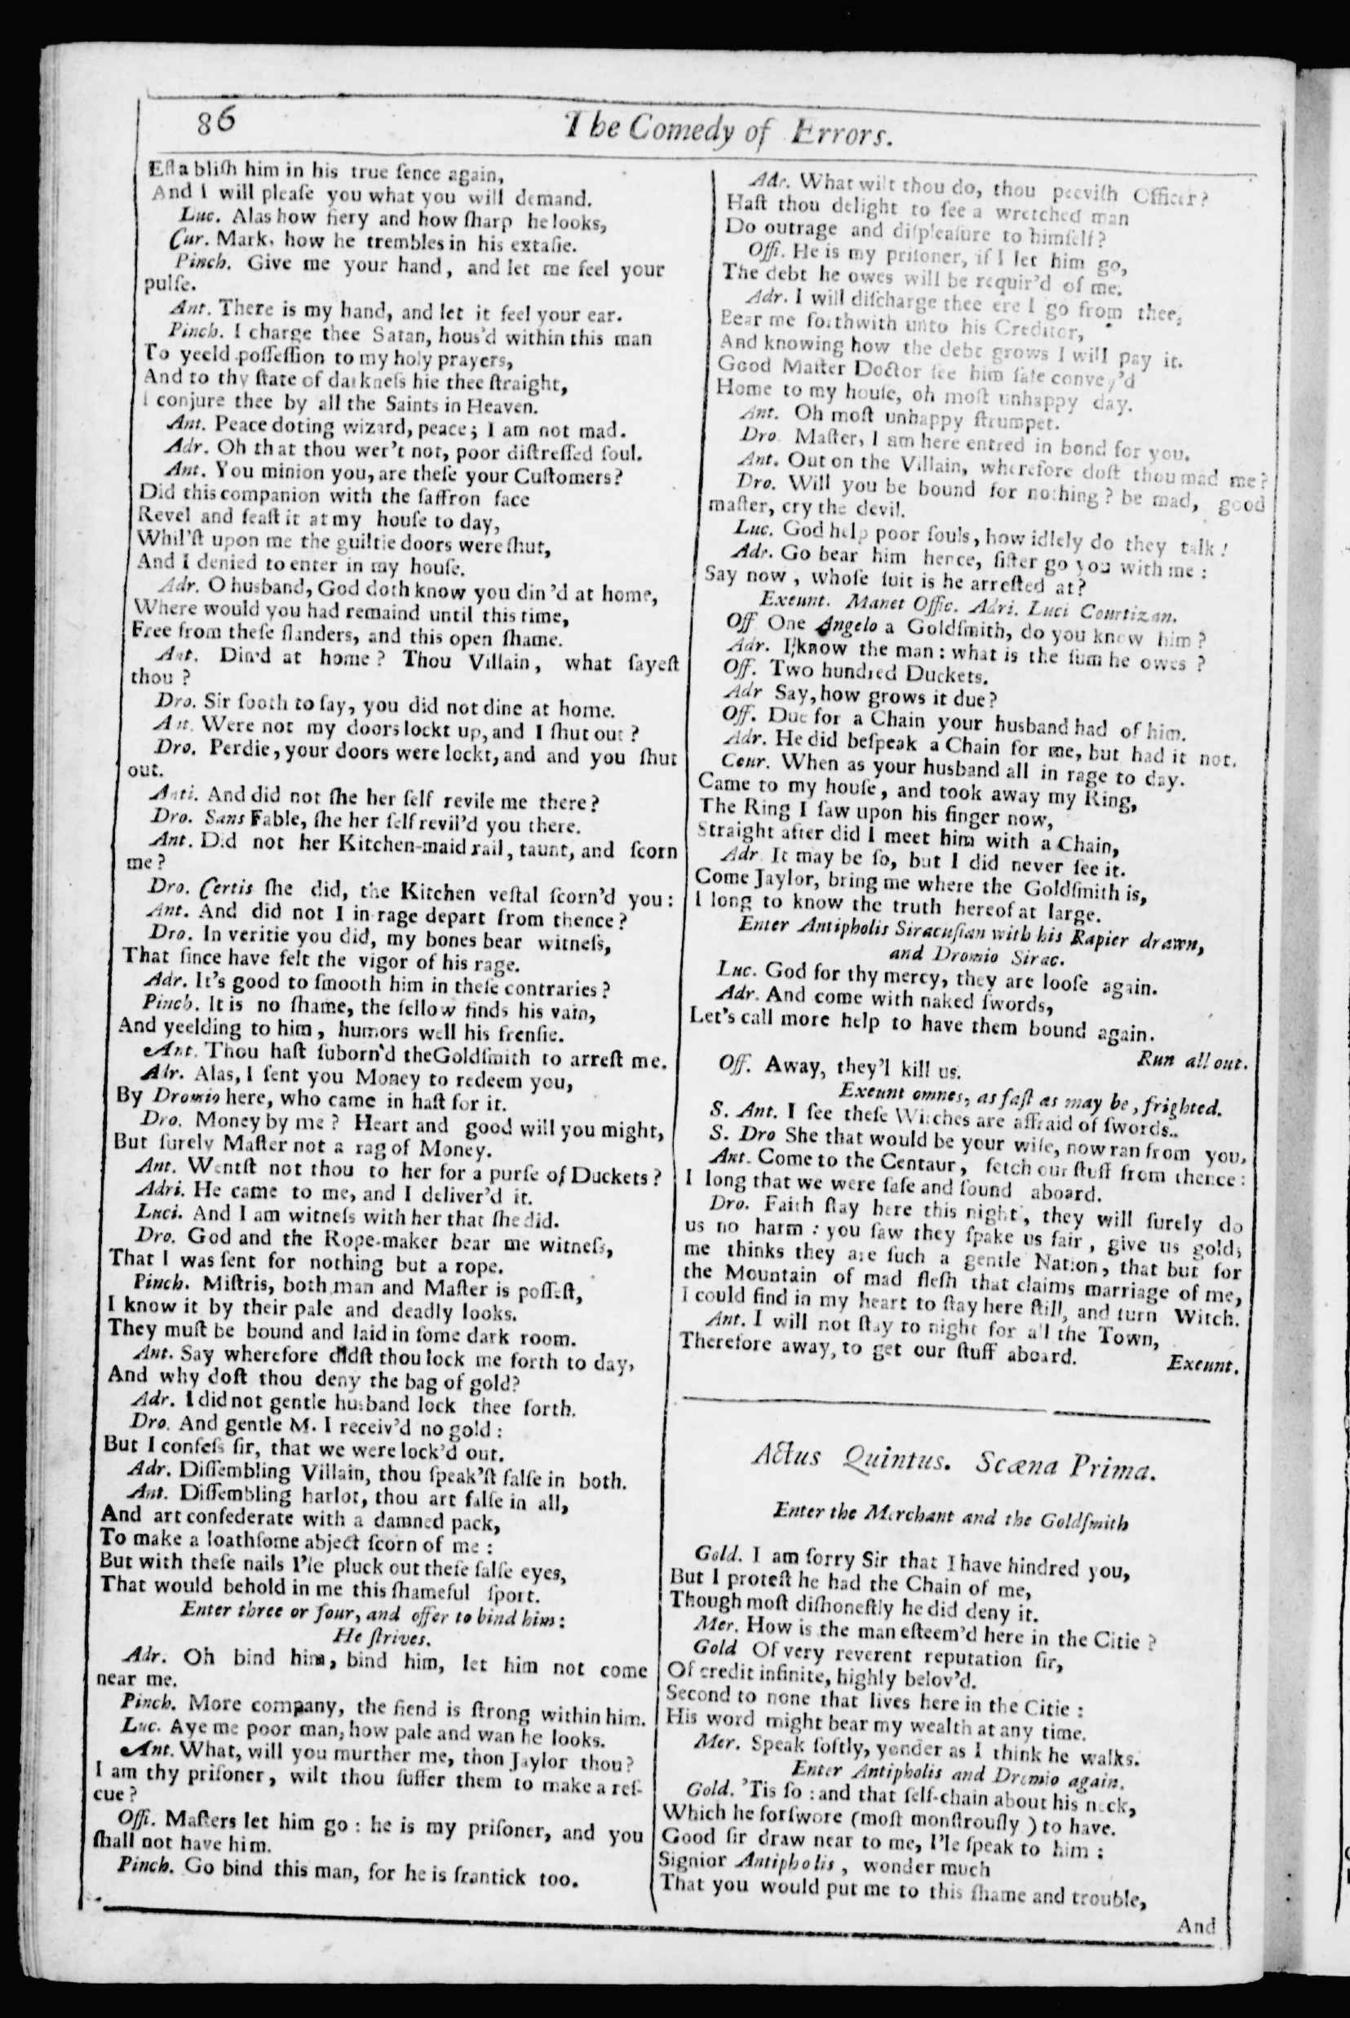 86
The Comedy of Errors.
Eſta bliſh him in his true ſence again,
And I will pleaſe you what you will demand.
Luc. Alas how fiery and how ſharp he looks,
Cur. Mark, how he trembles in his extaſie.
Pinch. Give me your hand, and let me feel your
pulſe.
Ant. There is my hand, and let it feel your ear.
Pinch. I charge thee Satan, hous'd within this man
To yeeld poſſeſſion to my holy prayers,
And to thy ſtate of darkneſs hie thee ſtraight,
I conjure thee by all the Saints in Heaven.
Ant. Peace doting wizard, peace; I am not mad.
Adr. Oh that thou wer't not, poor diſtreſſed ſoul.
Ant. You minion you, are theſe your Cuſtomers?
Did this companion with the ſaffron face
Revel and feaſt it at my houſe to day,
Whil'ſt upon me the guiltie doors were ſhut,
And I denied to enter in my houſe.
Adr. O husband, God doth know you din'd at home,
Where would you had remaind until this time,
Free from theſe ſlanders, and this open ſhame.
Ant. Din'd at home? Thou Villain, what ſayeſt
thou?
Dro. Sir ſooth to ſay, you did not dine at home.
Ant. Were not my doors lockt up, and I ſhut out?
Dro. Perdie, your doors were lockt, and and you ſhut
out.
Anti. And did not ſhe her ſelf revile me there?
Dro. Sans Fable, ſhe her ſelf revil'd you there.
Ant. Did not her Kitchen-maid rail, taunt, and ſcorn
me?
Dro. Certis ſhe did, the Kitchen veſtal ſcorn'd you:
Ant. And did not I in rage depart from thence?
Dro. In veritie you did, my bones bear witneſs,
That ſince have felt the vigor of his rage.
Adr. It's good to ſmooth him in theſe contraries?
Pinch. It is no ſhame, the fellow finds his vain,
And yeelding to him, humors well his frenſie.
Ant. Thou haſt ſuborn'd theGoldſmith to arreſt me.
Adr. Alas, I ſent you Money to redeem you,
By Dromio here, who came in haſt for it.
Dro. Money by me? Heart and good will you might,
But ſurely Maſter not a rag of Money.
Ant. Wentſt not thou to her for a purſe of Duckets?
Adri. He came to me, and I deliver'd it.
Luci. And I am witneſs with her that ſhe did.
Dro. God and the Rope-maker bear me witneſs,
That I was ſent for nothing but a rope.
Pinch. Miſtris, both man and Maſter is poſſeſt,
I know it by their pale and deadly looks.
They muſt be bound and laid in ſome dark room.
Ant. Say wherefore didſt thou lock me forth to day,
And why doſt thou deny the bag of gold?
Adr. I did not gentle husband lock thee forth.
Dro. And gentle M. I receiv'd no gold:
But I confeſs ſir, that we were lock'd out.
Adr. Diſſembling Villain, thou ſpeak'ſt falſe in both.
Ant. Diſſembling harlot, thou art falſe in all,
And art confederate with a damned pack,
To make a loathſome abject ſcorn of me:
But with theſe nails I'le pluck out theſe falſe eyes,
That would behold in me this ſhameful ſport.
Enter three or four, and offer to bind him:
He ſtrives.
Adr. Oh bind him, bind him, let him not come
near me.
Pinch. More company, the fiend is ſtrong within him.
Luc. Aye me poor man, how pale and wan he looks.
Ant. What, will you murther me, thon Jaylor thou?
I am thy priſoner, wilt thou ſuffer them to make a reſ-
cue?
Offi. Maſters let him go: he is my priſoner, and you
ſhall not have him.
Pinch. Go bind this man, for he is frantick too.
Adr. What wilt thou do, thou peeviſh Officer?
Haſt thou delight to ſee a wretched man
Do outrage and diſpleaſure to himſelf?
Offi. He is my priſoner, if I let him go,
The debt he owes will be requir'd of me.
Adr. I will diſcharge thee ere I go from thee,
Bear me forthwith unto his Creditor,
And knowing how the debt grows I will pay it.
Good Maſter Doctor ſee him ſafe convey'd
Home to my houſe, oh moſt unhappy day.
Ant. Oh moſt unhappy ſtrumpet.
Dro. Maſter, I am here entred in bond for you.
Ant. Out on the Villain, wherefore doſt thou mad me?
Dro. Will you be bound for nothing? be mad, good
maſter, cry the devil.
Luc. God help poor ſouls, how idlely do they talk!
Adr. Go bear him hence, ſiſter go you with me:
Say now, whoſe ſuit is he arreſted at?
Exeunt. Manet Offic. Adri. Luci Courtizan.
Off One Angelo a Goldſmith, do you know him?
Adr. I know the man: what is the ſum he owes?
Off. Two hundred Duckets.
Adr Say, how grows it due?
Off. Due for a Chain your husband had of him.
Adr. He did beſpeak a Chain for me, but had it not.
Cour. When as your husband all in rage to day.
Came to my houſe, and took away my Ring,
The Ring I ſaw upon his finger now,
Straight after did I meet him with a Chain,
Adr. It may be ſo, but I did never ſee it.
Come Jaylor, bring me where the Goldſmith is,
I long to know the truth hereof at large.
Enter Antipholis Siracuſian with his Rapier drawn,
and Dromio Sirac.
Luc. God for thy mercy, they are looſe again.
Adr. And come with naked ſwords,
Let's call more help to have them bound again.
Run all out.
Off. Away, they'l kill us.
Exeunt omnes, as faſt as may be, frighted.
S. Ant. I ſee theſe Witches are affraid of ſwords..
S. Dro She that would be your wife, now ran from you,
Ant. Come to the Centaur, fetch our ſtuff from thence:
I long that we were ſafe and ſound aboard.
Dro. Faith ſtay here this night, they will ſurely do
us no harm: you ſaw they ſpake us fair, give us gold;
me thinks they are ſuch a gentle Nation, that but for
the Mountain of mad fleſh that claims marriage of me,
I could find in my heart to ſtay here ſtill, and turn Witch.
Ant. I will not ſtay to night for all the Town,
Therefore away, to get our ſtuff aboard.
Exeunt.
Actus Quintus. Scæna Prima.
Enter the Merchant and the Goldſmith
Gold. I am ſorry Sir that I have hindred you,
But I proteſt he had the Chain of me,
Though moſt diſhoneſtly he did deny it.
Mer. How is the man eſteem'd here in the Citie?
Gold Of very reverent reputation ſir,
Of credit infinite, highly belov'd.
Second to none that lives here in the Citie:
His word might bear my wealth at any time.
Mer. Speak ſoftly, yonder as I think he walks.
Enter Antipholis and Dromio again.
Gold. 'Tis ſo: and that ſelf-chain about his neck,
Which he forſwore (moſt monſtrouſly) to have.
Good ſir draw near to me, I'le ſpeak to him:
Signior Antipholis, wonder much
That you would put me to this ſhame and trouble,
And